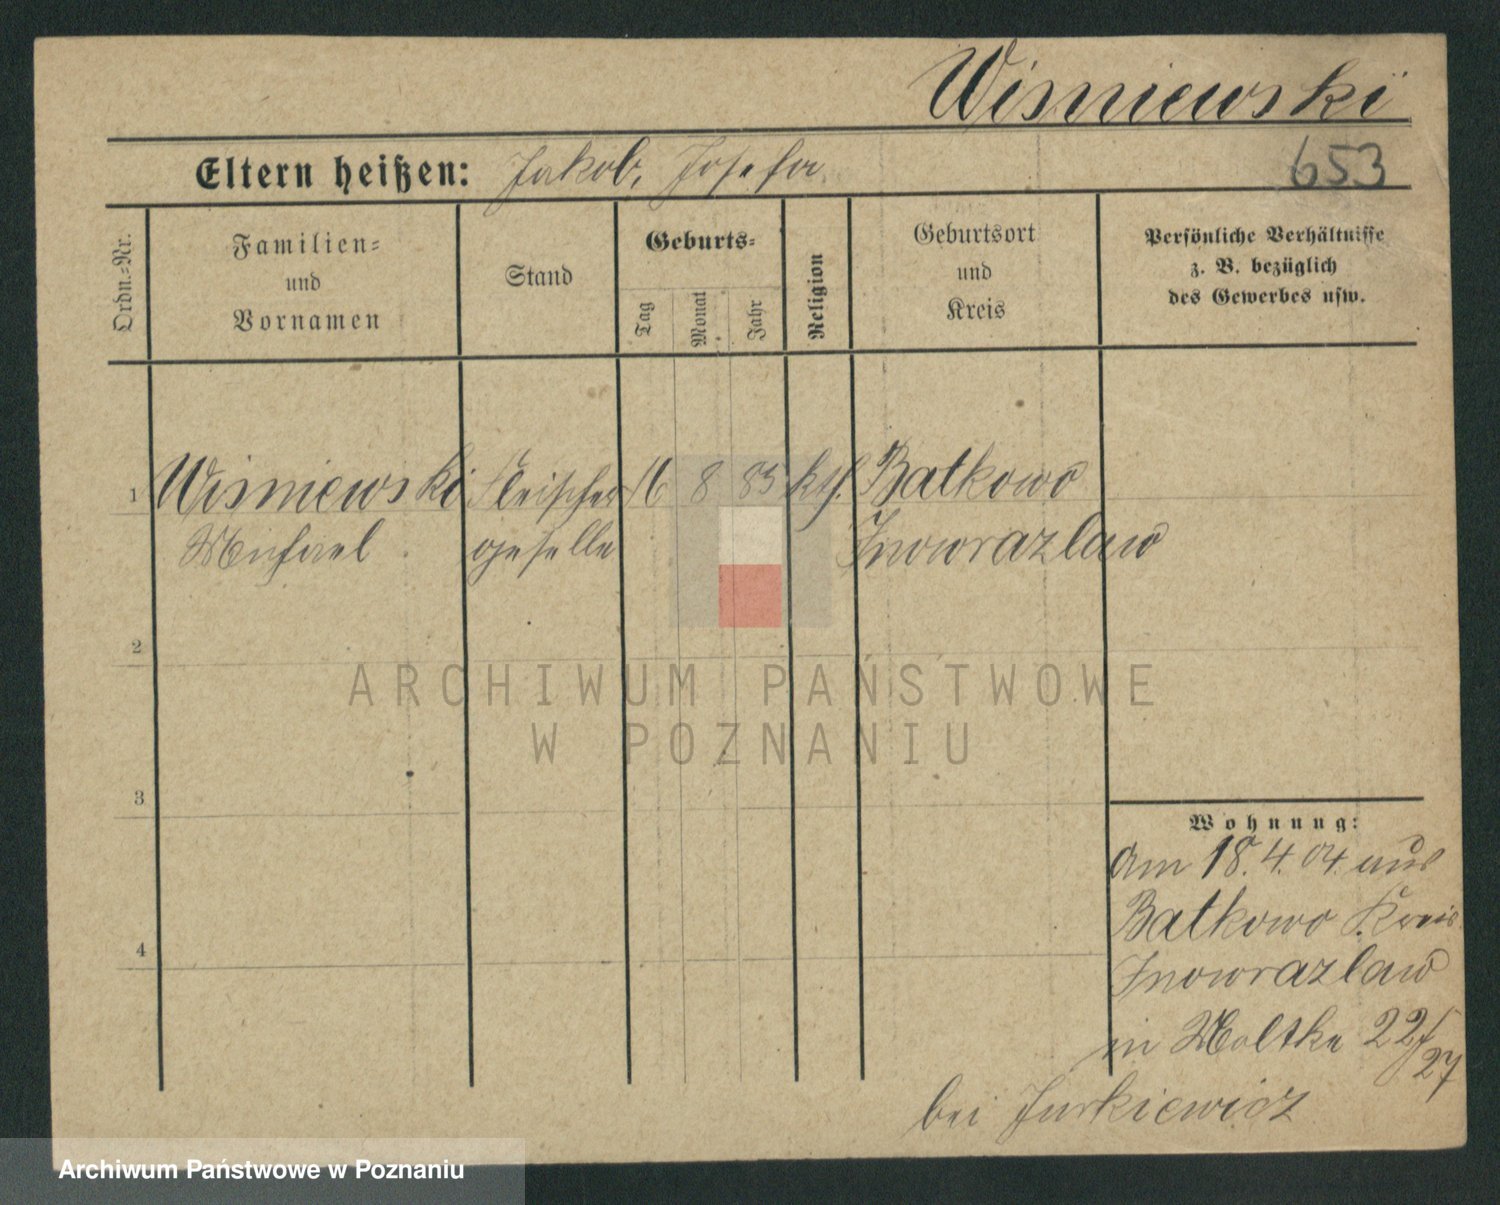 Wisniewski
Eltern heißen: Jakob, Josefa
653
Ordn.-Nr.
Familien-
und
Vornamen
Stand
Geburts-
Tag
Monat
Jahr
Religion
Geburtsort
und
Kreis
Persönliche Verhältnisse
z. B. bezüglich
des Gewerbes usw.
1 Wisniewski Fleischer 16 8 85 kth. Batkowo
Michael geselle Inowrazlaw
2
3
4
Wohnung:
Am 18.4.04. aus
Batkowo Kreis
Inowrazlaw
in Moltke 22/27
bei Jurkiewicz
ARCHIWUM PAŃSTWOWE
W POZNANIU
Archiwum Państwowe w Poznaniu